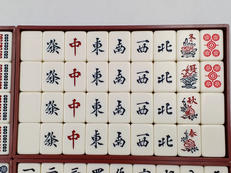 發 中 東 南 西 北 冬
發 中 東 南 西 北
發 中 東 南 西 北 秋
發 中 東 南 西 北 春